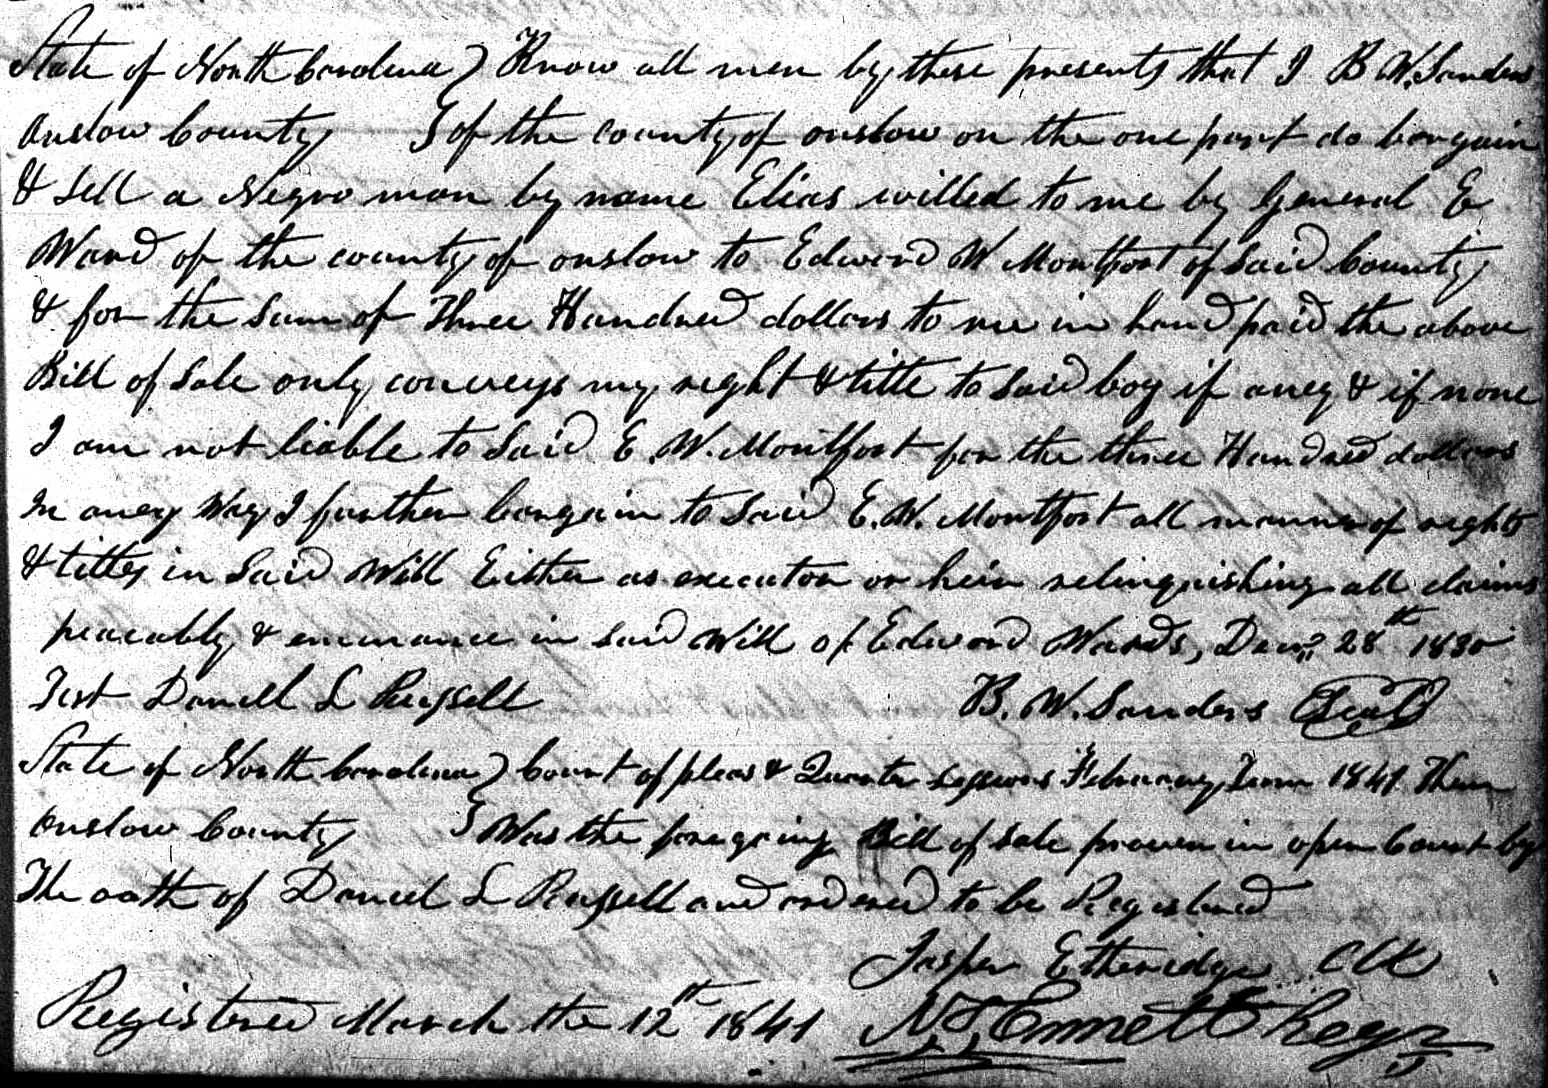 State of North Carolina } Know all men by these presents that I B W. Sanders
Onslow County } of the county of onslow on the one part do bargain
& sell a Negro man by name Elias willed to me by General E
Ward of the county of onslow to Edward W Montfort of said County
& for the sum of Three Hundred dollars to me in hand paid the above
Bill of sale only conveys my right & title to said boy if aney & if none
I am not liable to said E. W. Montfort for the three Hundred dollars
In aney Way I further bargain to said E. W. Montfort all manner of rights
& titles in said Will Either as executor or heir relinquishing all claims
peacably & in said Will of Edward Wards, Decr. 28th 1830
Test Daniell L Russell B. W. Sanders Seal
State of North Carolina } Court of pleas & Quarter Sessions February Term 1841 Then
Onslow County } Was the foregoing Bill of sale proven in open Court by
The oath of Daniel L Russell and ordered to be Registered
Jasper Etheridge Clk
Registered March the 12th 1841 Emmett Regr